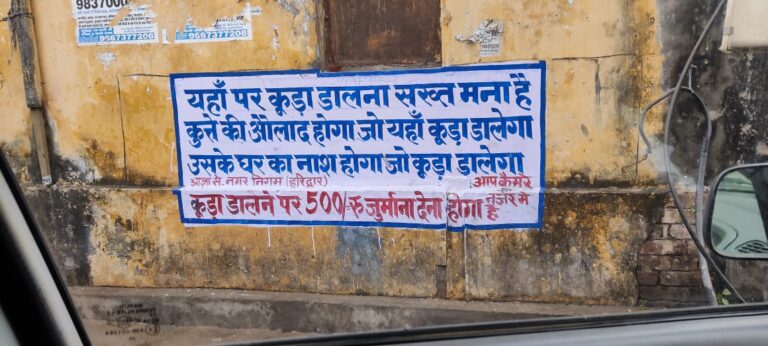 9837000
9567377208
9567377208
यहाँ पर कूड़ा डालना सख्त मना है
कुत्ते की औलाद होगा जो यहाँ कूड़ा डालेगा
उसके घर का नाश होगा जो कूड़ा डालेगा
आज्ञा से. नगर निगम (हरिद्वार)
आप कैमरे
नजर मे
है
कूड़ा डालने पर 500/-रु जुर्माना देना होगा